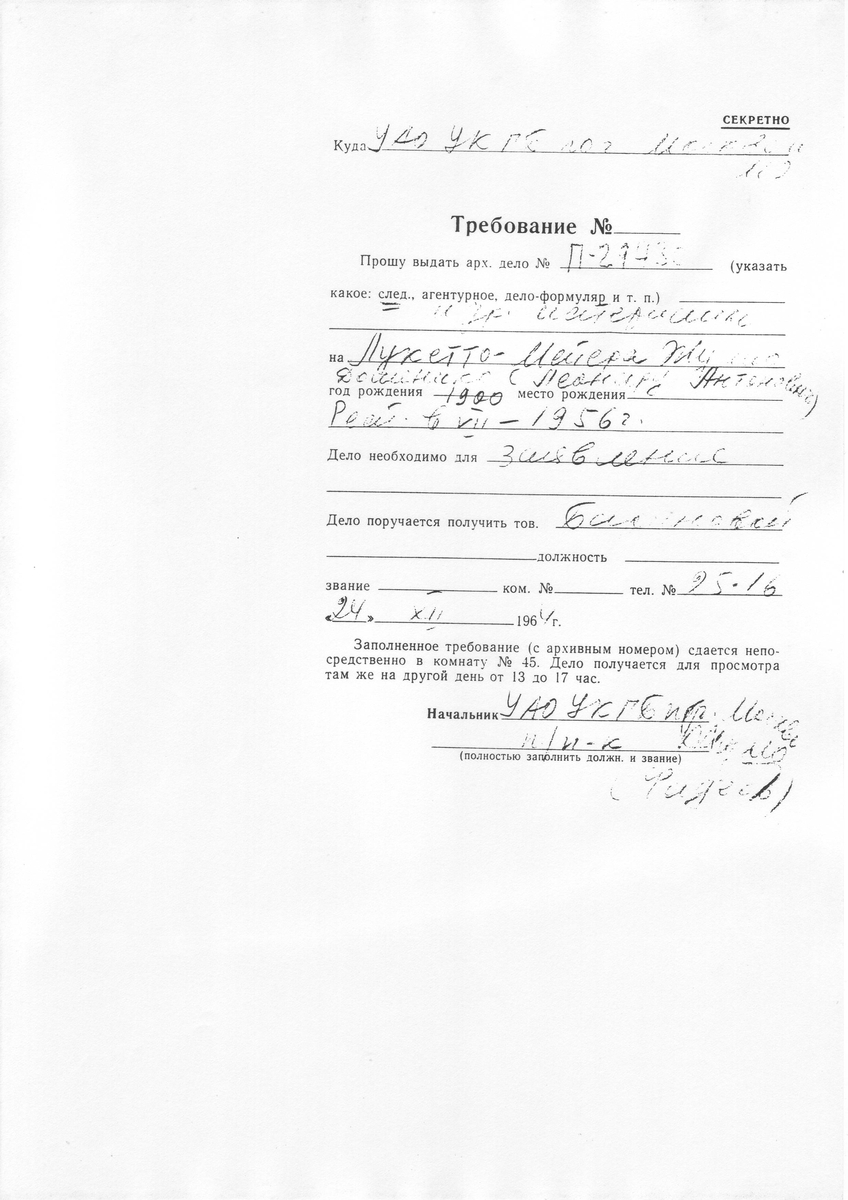 СЕКРЕТНО
Куда УАО УКГБ по г. Москве и
МО
Требование №
Прошу выдать арх. дело № (указать
какое: след., агентурное, дело-формуляр и т. п.)
и др. материалы
на Лукетто-Мейера
Доминико (Леонида Антоновича)
год рождения 1900 место рождения
Реаб. в VII – 1956 г.
Дело необходимо для заявления
Дело поручается получить тов.
должность
звание ком. № тел. № 25-16
«24» XII 1964 г.
Заполненное требование (с архивным номером) сдается непо-
средственно в комнату № 45. Дело получается для просмотра
там же на другой день от 13 до 17 час.
Начальник УАО УКГБ
п/п-к МО
(полностью заполнить должн. и звание)